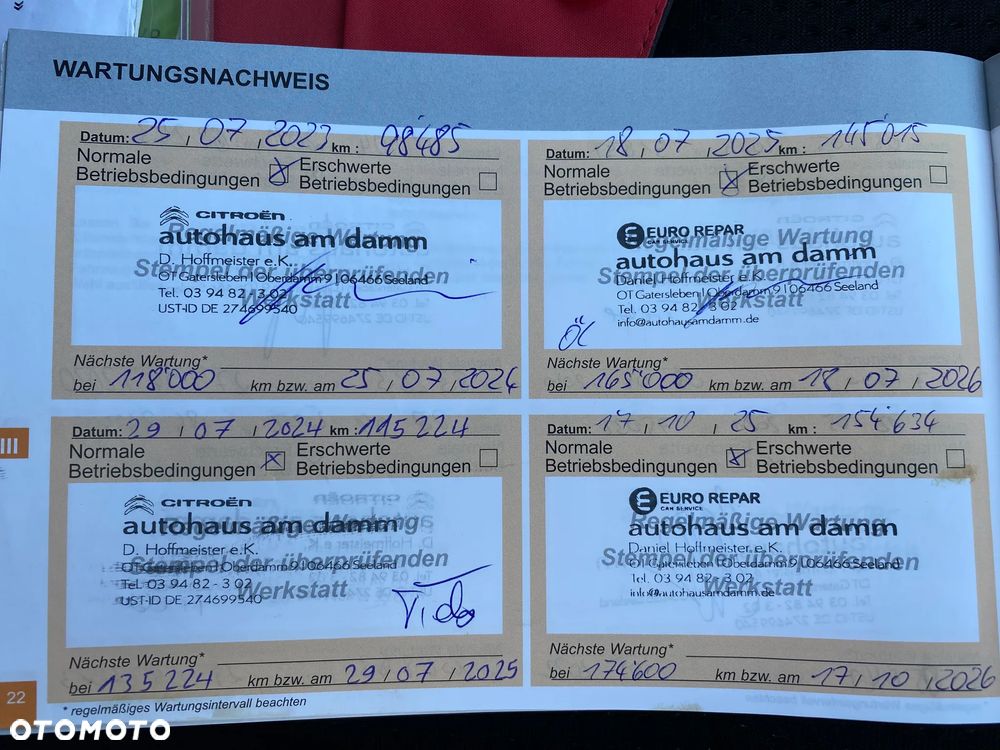 WARTUNGSNACHWEIS
Datum: 25, 07, 2023 km: 98'485
Normale Betriebsbedingungen X Erschwerte Betriebsbedingungen
CITROËN
autohaus am damm
D. Hoffmeister e.K.
OT Gatersleben | Oberdamm 9 | 06466 Seeland
Tel. 03 94 82 - 3 02
UST-ID DE 274699540
Regelmäßige Wartung
Stempel der überprüfenden
Werkstatt
Nächste Wartung*
bei 118'000 km bzw. am 25, 07, 2024
Datum: 18, 07, 2025 km: 145'015
Normale Betriebsbedingungen X Erschwerte Betriebsbedingungen
EURO REPAR
CAR SERVICE
autohaus am damm
Daniel Hoffmeister e.K.
OT Gatersleben | Oberdamm 9 | 06466 Seeland
Tel. 03 94 82 - 3 02
info@autohausamdamm.de
Regelmäßige Wartung
Stempel der überprüfenden
Werkstatt
Öl
Nächste Wartung*
bei 165'000 km bzw. am 18, 07, 2026
III
Datum: 29, 07, 2024 km: 115224
Normale Betriebsbedingungen X Erschwerte Betriebsbedingungen
CITROËN
autohaus am damm
D. Hoffmeister e.K.
OT Gatersleben | Oberdamm 9 | 06466 Seeland
Tel. 03 94 82 - 3 02
UST-ID DE 274699540
Regelmäßige Wartung
Stempel der überprüfenden
Werkstatt
Nächste Wartung*
bei 135224 km bzw. am 29, 07, 2025
Datum: 17, 10, 25 km: 154'634
Normale Betriebsbedingungen X Erschwerte Betriebsbedingungen
EURO REPAR
CAR SERVICE
autohaus am damm
Daniel Hoffmeister e.K.
OT Gatersleben | Oberdamm 9 | 06466 Seeland
Tel. 03 94 82 - 3 02
info@autohausamdamm.de
Regelmäßige Wartung
Stempel der überprüfenden
Werkstatt
Nächste Wartung*
bei 174600 km bzw. am 17, 10, 2026
22
* regelmäßiges Wartungsintervall beachten
OTOMOTO